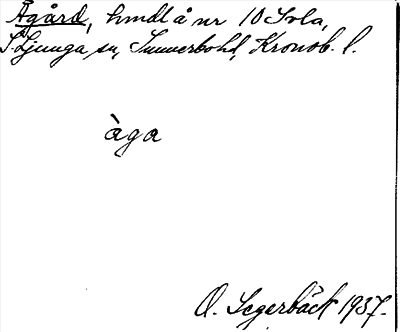 Ågård, hmdl å nr 10 Sola,
S. Ljunga sn, Sunnerbo hd, Kronob. l.
àga
O. Segerbäck 1937.